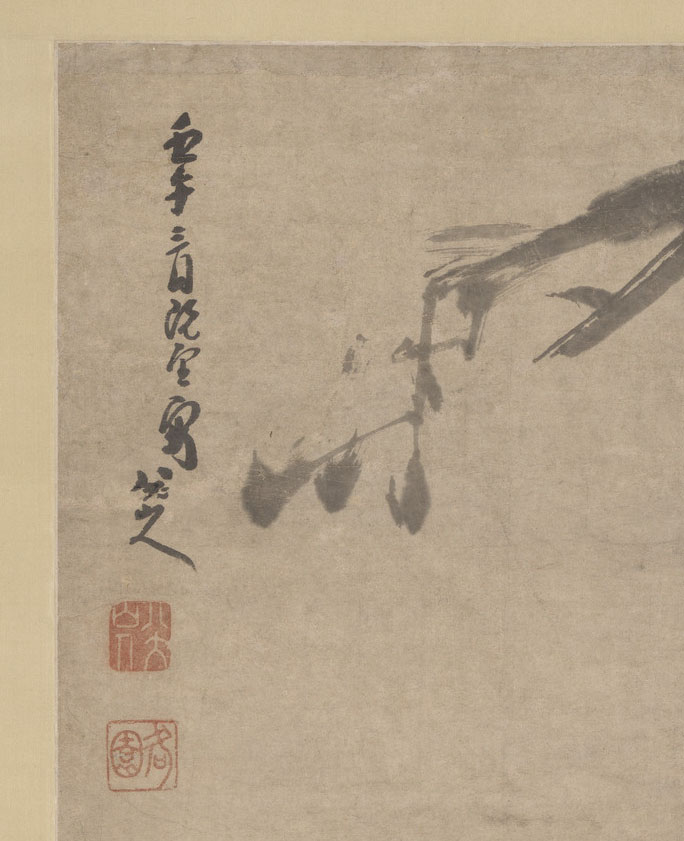 壬午三月既望寫
八大山人
八大山人
何園